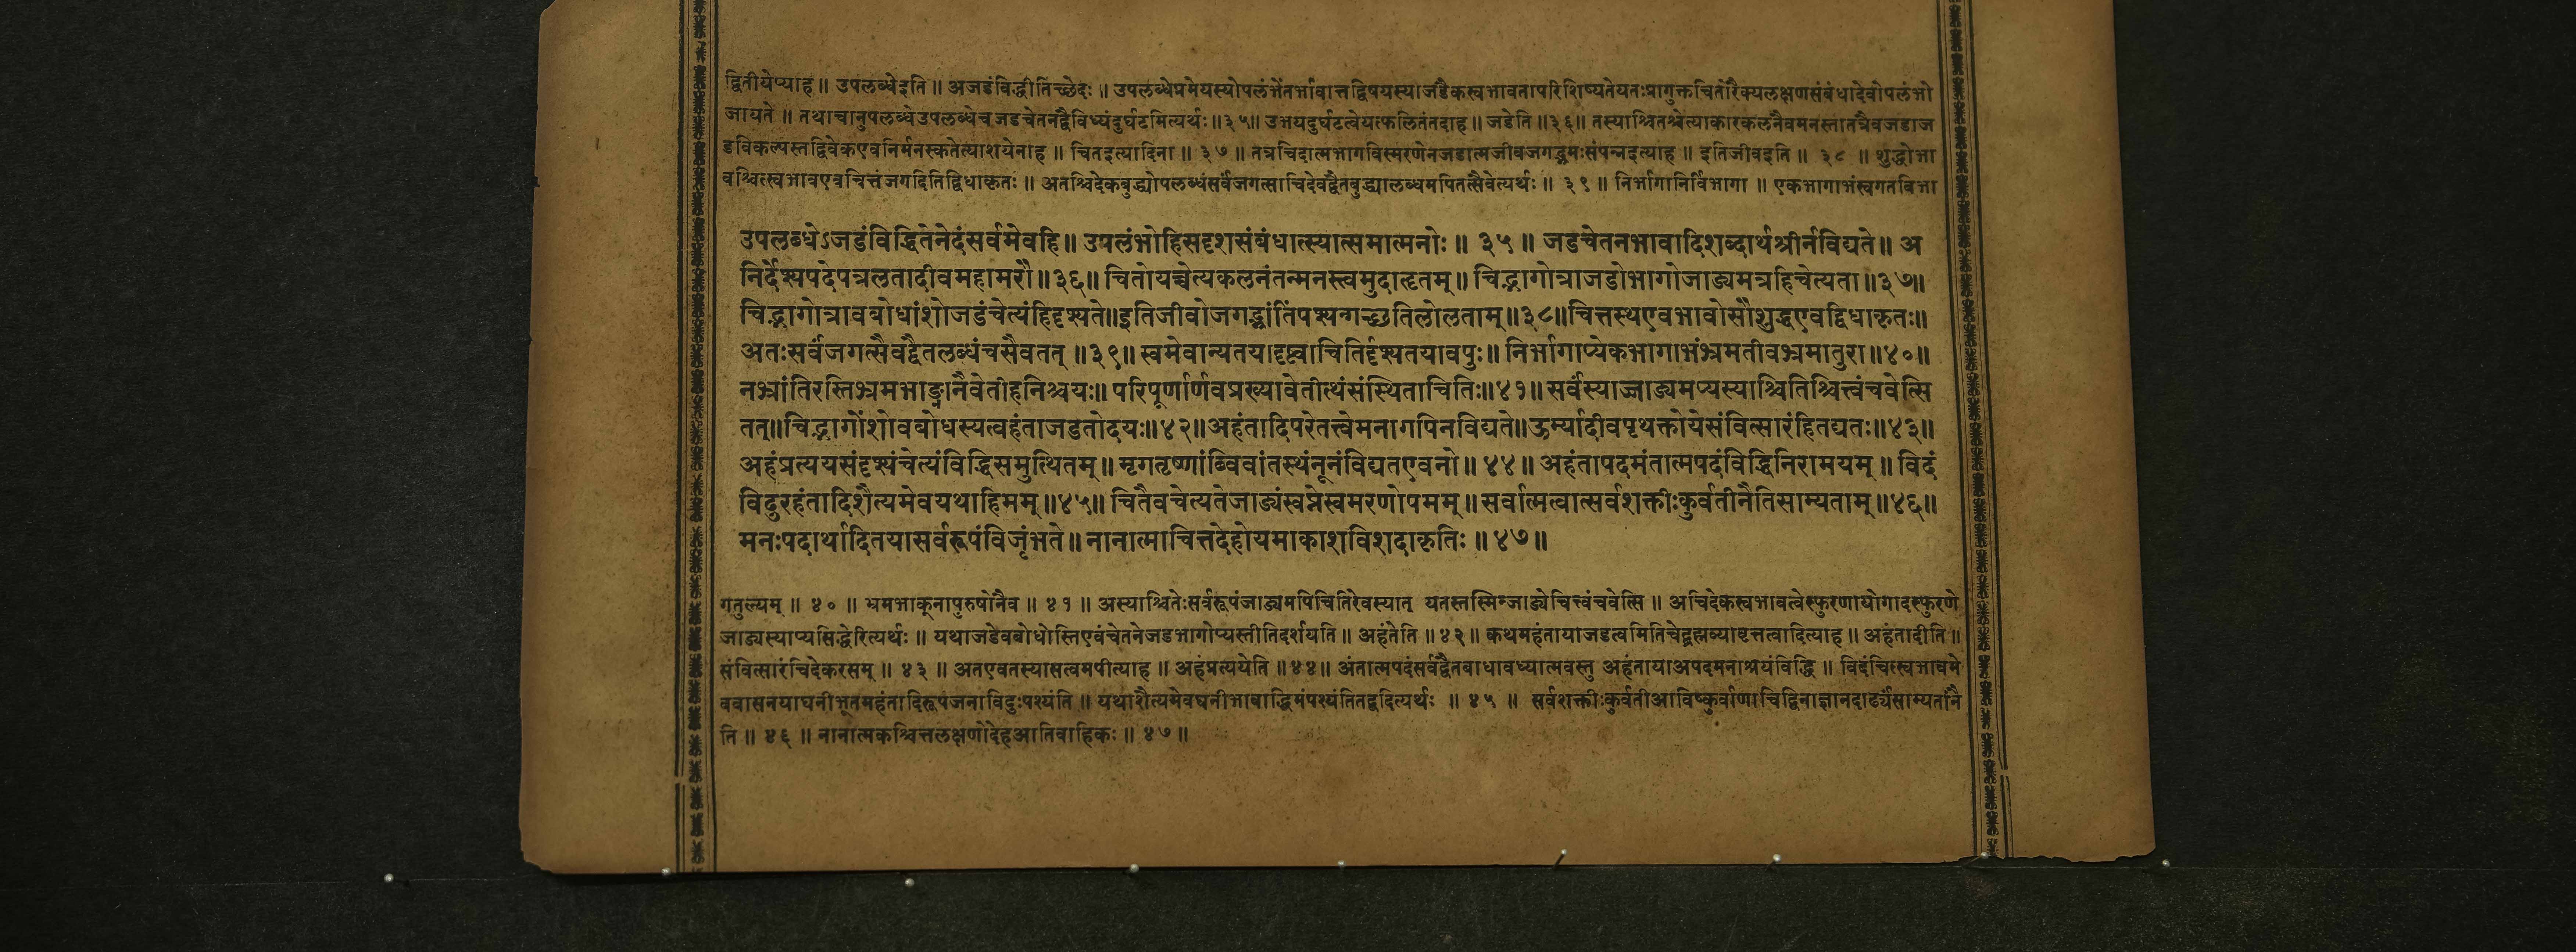 द्वितीयेप्याह ॥ उपलब्धेइति ॥ अजडंविद्धीतिच्छेदः ॥ उपलब्धेप्रमेयस्योपलंभेंतर्भावात्तद्विषयस्याजडैकस्वभावतापरिशिष्यतेयतःप्रागुक्तचितोरैक्यलक्षणसंबंधादेवोपलंभो
जायते ॥ तथाचानुपलब्धेउपलब्धेचजडचेतनद्वैविध्यंदुर्घटमित्यर्थः ॥३५॥ उभयदुर्घटत्वेयत्फलितंतदाह ॥ जडेति ॥३६॥ तस्याश्चितश्चेत्याकारकलनैवमनस्तातत्रैवजडाज
डविकल्पस्तद्विवेकएवनिर्मनस्कतेत्याशयेनाह ॥ चितइत्यादिना ॥ ३७ ॥ तत्रचिदात्मभागविस्मरणेनजडात्मजीवजगद्भ्रमःसंपन्नइत्याह ॥ इतिजीवइति ॥ ३८ ॥ शुद्धोभा
वश्चित्स्वभावएवचित्तंजगदितिद्विधाकृतः ॥ अतश्चिदेकबुद्ध्योपलब्धंसर्वंजगत्साचिदेवद्वैतबुद्ध्यालब्धमपितत्सैवेत्यर्थः ॥ ३९ ॥ निर्भागानिर्विभागा ॥ एकभागाभंस्वगतविभा
उपलब्धेऽजडंविद्धितेनेदंसर्वमेवहि॥ उपलंभोहिसदृशसंबंधात्स्यात्समात्मनोः ॥ ३५ ॥ जडचेतनभावादिशब्दार्थश्रीर्नविद्यते॥ अ
निर्देश्यपदेपत्रलतादीवमहामरौ॥३६॥ चितोयच्चेत्यकलनंतन्मनस्त्वमुदाहृतम्॥ चिद्भागोत्राजडोभागोजाड्यमत्रहिचेत्यता॥३७॥
चिद्भागोत्रावबोधांशोजडंचेत्यंहिदृश्यते॥इतिजीवोजगद्भ्रांतिंपश्यन्गच्छतिलोलताम्॥३८॥चित्तस्थएवभावोसौशुद्धएवद्विधाकृतः॥
अतःसर्वंजगत्सैवद्वैतलब्धंचसैवतत् ॥३९॥ स्वमेवान्यतयादृष्ट्वाचितिर्दृश्यतयावपुः॥ निर्भागाप्येकभागाभंभ्रमतीवभ्रमातुरा॥४०॥
नभ्रांतिरस्तिभ्रमभाङ्नैवेतीहनिश्चयः॥ परिपूर्णार्णवप्रख्यावेतीत्थंसंस्थिताचितिः॥४१॥ सर्वंस्याज्जाड्यमप्यस्याश्चितिश्चित्त्वंचवेत्सि
तत्॥चिद्भागोंशोवबोधस्यत्वहंताजडतोदयः॥४२॥अहंतादिपरेतत्त्वेमनागपिनविद्यते॥ऊर्म्यादीवपृथक्तोयेसंवित्सारंहितद्यतः॥४३॥
अहंप्रत्ययसंदृश्यंचेत्यंविद्धिसमुत्थितम्॥ मृगतृष्णांब्विवांतस्थंनूनंविद्यतएवनो॥ ४४॥ अहंतापदमंतात्मपदंविद्धिनिरामयम् ॥ विदं
विदुरहंतादिशैत्यमेवयथाहिमम्॥४५॥ चितैवचेत्यतेजाड्यंस्वप्नेस्वमरणोपमम्॥ सर्वात्मत्वात्सर्वशक्तीःकुर्वतीनैतिसाम्यताम्॥४६॥
मनःपदार्थादितयासर्वरूपंविजृंभते॥ नानात्माचित्तदेहोयमाकाशविशदाकृतिः ॥ ४७॥
गतुल्यम् ॥ ४० ॥ भ्रमभाक्नापुरुषोनैव ॥ ४१ ॥ अस्याश्चितेःसर्वरूपंजाड्यमपिचितिरेवस्यात् यतस्तस्मिन्जाड्येचित्त्वंचवेत्सि ॥ अचिदेकस्वभावत्वेस्फुरणायोगादस्फुरणे
जाड्यस्याप्यसिद्धेरित्यर्थः ॥ यथाजडेवबोधोस्तिएवंचेतनेजडभागोप्यस्तीतिदर्शयति ॥ अहंतेति ॥४२॥ कथमहंतायाजडत्वमितिचेद्ब्रह्मव्यावृत्तत्वादित्याह ॥ अहंतादीति ॥
संवित्सारंचिदेकरसम् ॥ ४३ ॥ अतएवतस्यासत्वमपीत्याह ॥ अहंप्रत्ययेति ॥४४॥ अंतात्मपदंसर्वद्वैतबाधावध्यात्मवस्तु अहंतायाअपदमनाश्रयंविद्धि ॥ विदंचित्स्वभावमे
ववासनयाघनीभूतमहंतादिरूपंजनाविदुःपश्यंति ॥ यथाशैत्यमेवघनीभावाद्धिमंपश्यंतितद्वदित्यर्थः ॥ ४५ ॥ सर्वशक्तीःकुर्वतीआविष्कुर्वाणाचिद्विनाज्ञानदार्ढ्यंसाम्यतांनै
ति ॥ ४६ ॥ नानात्मकश्चित्तलक्षणोदेहआतिवाहिकः ॥ ४७॥